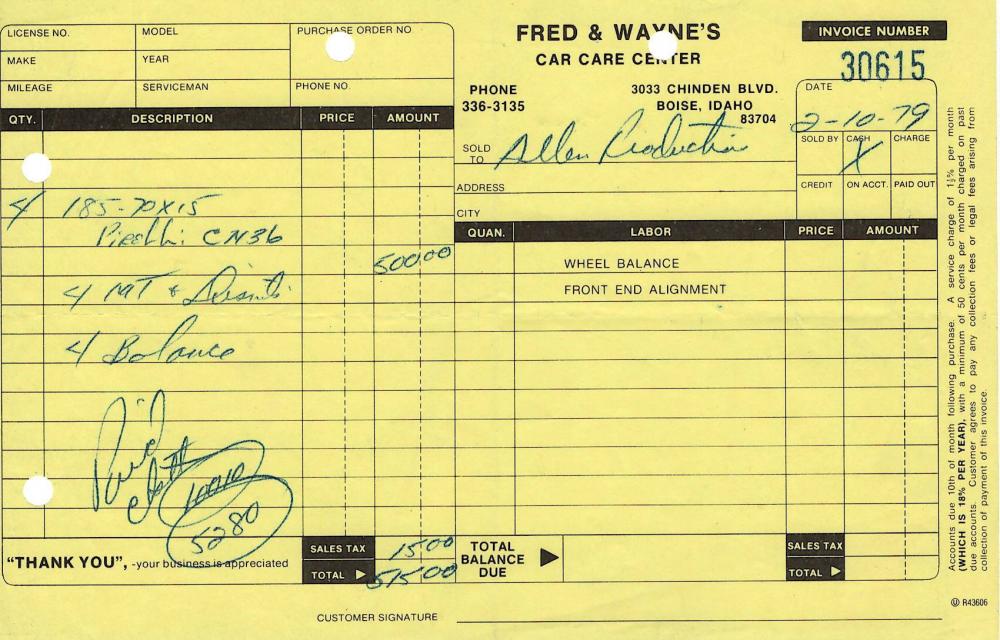 LICENSE NO.
MODEL
PURCHASE ORDER NO
MAKE
YEAR
MILEAGE
SERVICEMAN
PHONE NO.
FRED & WAYNE'S
CAR CARE CENTER
PHONE
336-3135
3033 CHINDEN BLVD.
BOISE, IDAHO
83704
INVOICE NUMBER
30615
DATE
2-10-79
SOLD BY
CASH
X
CHARGE
CREDIT
ON ACCT.
PAID OUT
SOLD TO
Allen Production
ADDRESS
CITY
QTY.
DESCRIPTION
PRICE
AMOUNT
4 185-70X15
Pirelli CN36
500 00
4 MT +
4 Balance
Paid
5280
"THANK YOU", -your business is appreciated
SALES TAX 15 00
TOTAL 515 00
QUAN.
LABOR
PRICE
AMOUNT
WHEEL BALANCE
FRONT END ALIGNMENT
TOTAL
BALANCE
DUE
SALES TAX
TOTAL
CUSTOMER SIGNATURE
Accounts due 10th of month following purchase. A service charge of 1½% per month
(WHICH IS 18% PER YEAR), with a minimum of 50 cents per month charged on past
due accounts. Customer agrees to pay any collection fees or legal fees arising from
collection of payment of this invoice.
R43606